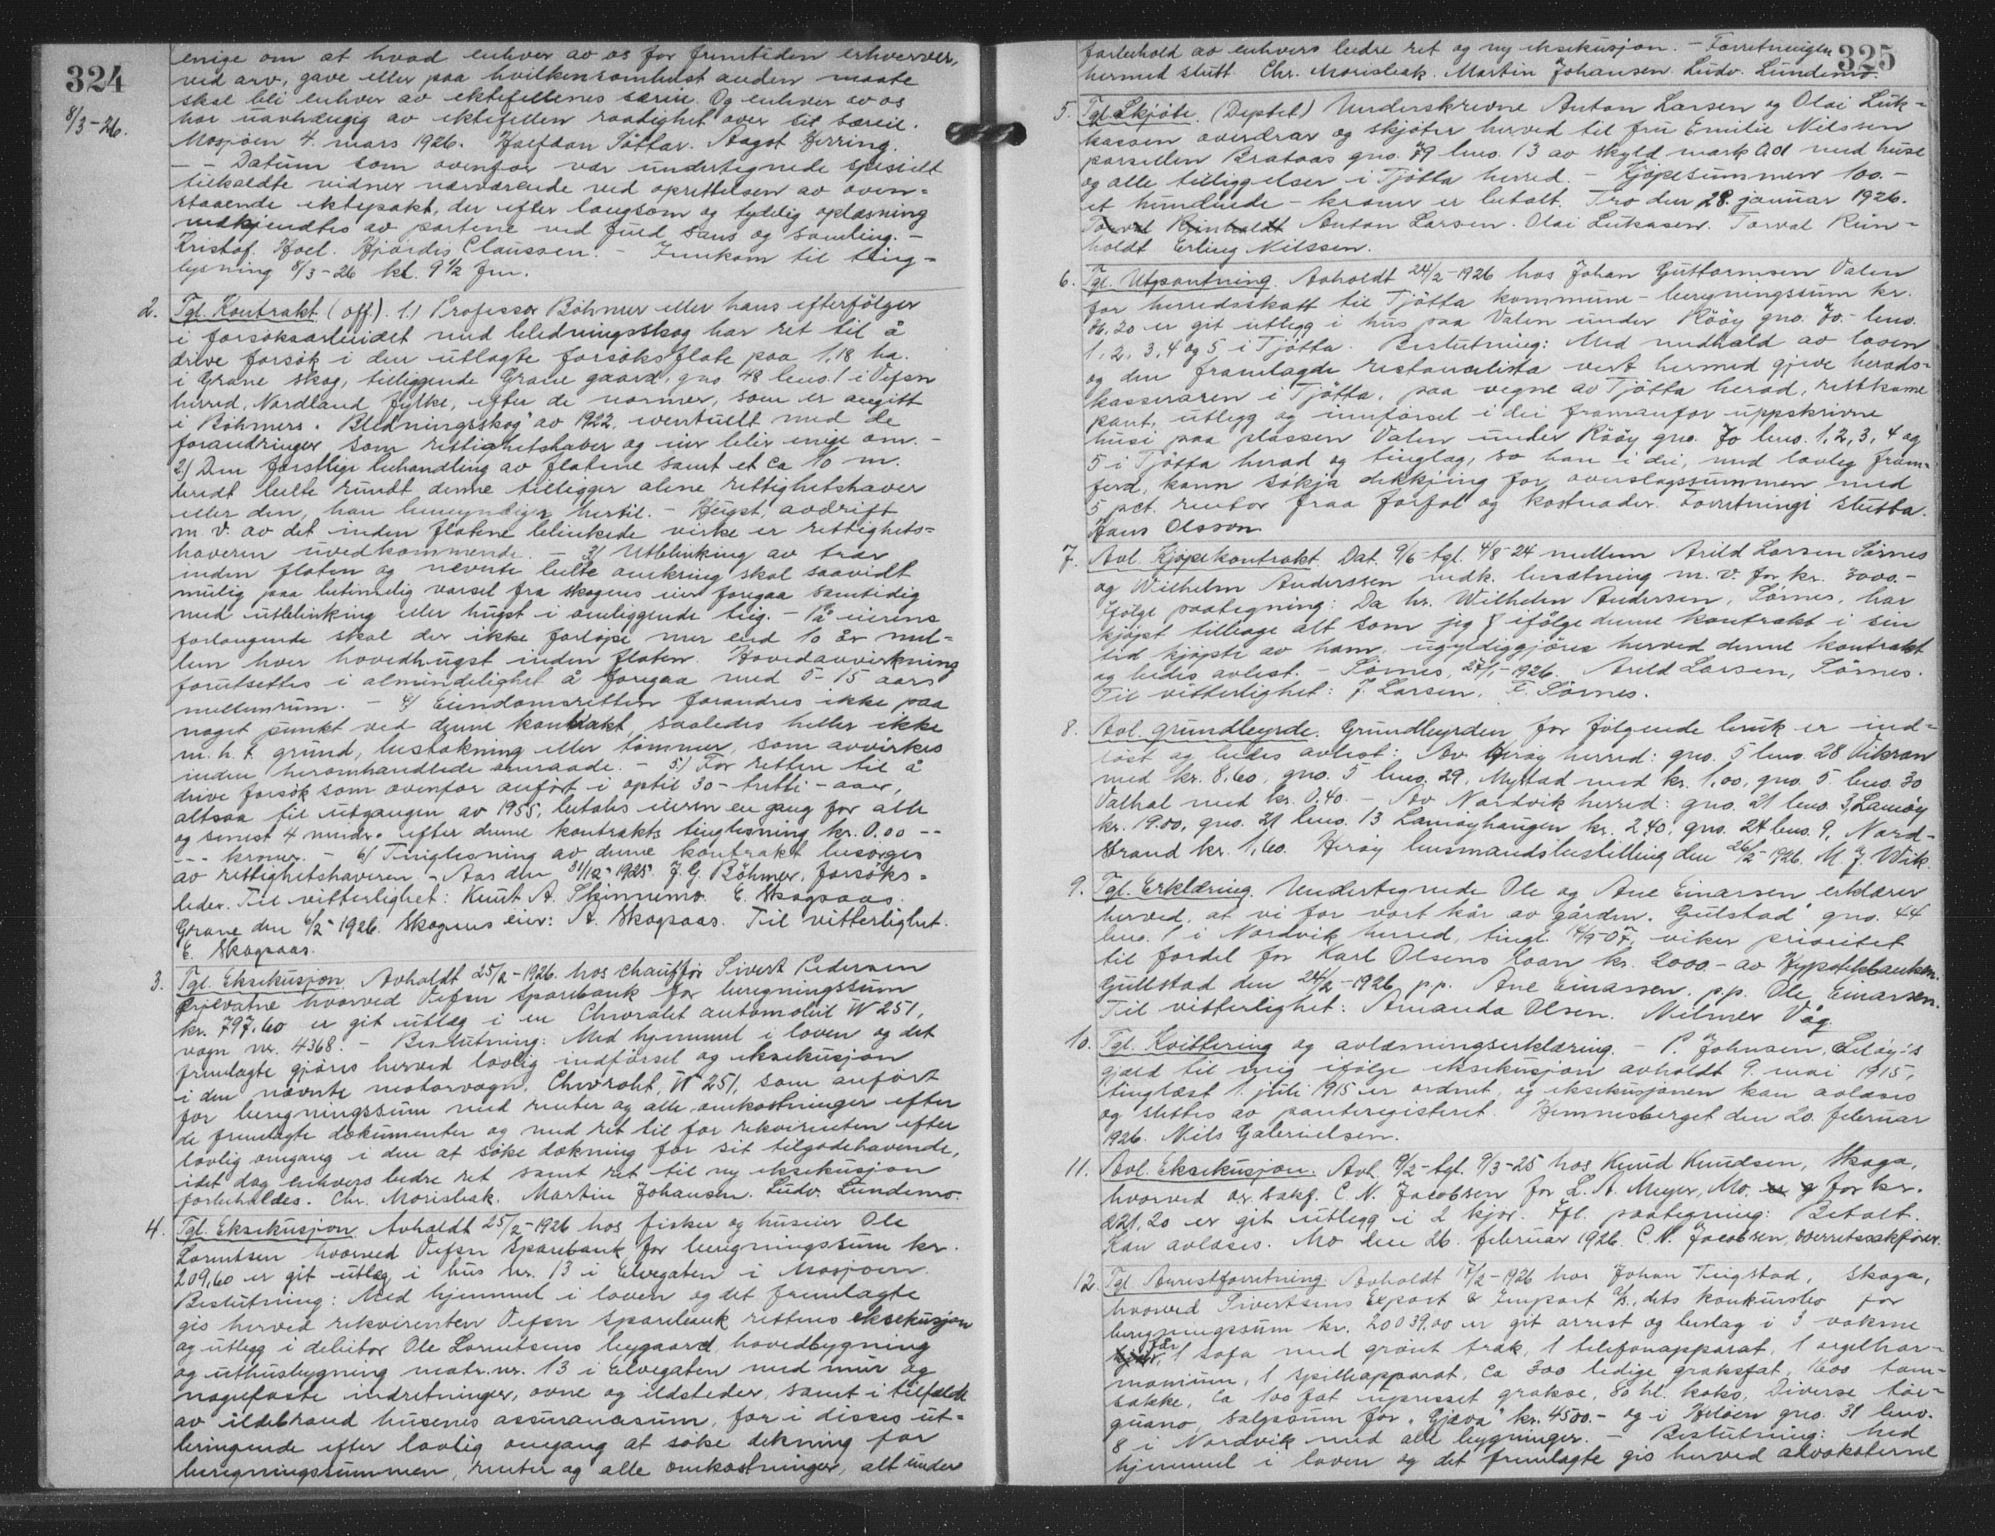 324
8/3-26.
enige om at hvad enhver av os for fremtiden erhverver,
ved arv, gave eller paa hvilkensomhelst anden maate
skal bli enhver av ektefellenes særeie. Og enhver av os
har uavhængig av ektefellen raadighet over sit særeie.
Mosjøen 4. mars 1926. Halfdan Søttar. Aagot Herring.
- - Datum som ovenfor var undertegnede spesielt
tilkaldte vidner nærværende ved oprettelsen av oven=
staaende ektepakt, der efter langsom og tydelig oplæsning
vedkjendtes av partene ved fuld sans og samling. -
Kristof. Hoel. Hjørdis Claussen. - Innkom til ting-
lysning 8/3-26 kl. 9 1/2 fm.
2. Tgl. Kontrakt (off). 1.) Professor Böhmer eller hans efterfølger
i forsøksarbeidet med bledningsskog har ret til å
drive forsøk i den utlagte forsøksflate paa 1,18 ha.
i Grane skog, tilliggende Grane gaard, gno. 48 bno. 1 i Vefsn
herred, Nordland fylke, efter de normer, som er angitt
i Böhmers "Bledningsskog" av 1922, eventuelt med de
forandringer som rettighetshaver og eier blir enige om. -
2.) Den forstlige behandling av flatene samt et ca 10 m.
bredt belte rundt denne tilligger alene rettighetshaver
eller den, han bemyndiger hertil. - Hugst, avdrift
m. v. av det inden flatene blinkede virke er rettighets=
haveren uvedkommende. - 3) Utblinking av trær
inden flaten og nevnte belte omkring skal saavidt
mulig paa betimelig varsel fra skogens eier foregaa samtidig
med utblinking eller hugst i omliggende teig. - På eierens
forlangende skal der ikke forløpe mer end 10 år mel=
lem hver hovedhugst inden flaten. Hovedavvirkning
forutsettes i almindelighet å foregaa med 5-15 aars
mellemrum. - 4) Eiendomsretten forandres ikke paa
noget punkt ved denne kontrakt saaledes heller ikke
m. h. t. grund, bestokning eller tømmer, som avvirkes
inden heromhandlede omraade. - 5) For retten til å
drive forsøk som ovenfor anført i optil 30 - tretti - aar,
altsaa til utgangen av 1955, betales eieren en gang for alle
og senest 4 mndr. efter denne kontrakts tinglesning kr. 0.00 --
--- kroner. - 6) Tinglesning av denne kontrakt besørges
av rettighetshaveren. - Aas den 31/12-1925 J. G. Böhmer, forsøks=
leder. Til vitterlighet: Knut A. Skinnemo. E. Skogsaas.
Grane den 6/2-1926. Skogens eier: A. Skogsaas. Til vitterlighet.
E. Skogsaas.
3. Tgl. Eksekusjon. Avholdt 25/2-1926 hos chauffør Sivert Pedersen
hvorved Vefsn Sparebank for beregningssum
kr. 797.60 er git utlæg i en Chevrolet automobil W 251,
vogn nr. 4368. - Beslutning: Med hjemmel i loven og det
fremlagte gjøres herved lovlig indførsel og eksekusjon
i den nævnte motorvogn, Chevrolet, W 251, som anført
for beregningssum med renter og alle omkostninger efter
de fremlagte dokumenter og med ret til for rekvirenten efter
lovlig omgang i den at søke dækning for sit tilgodehavende,
idet dog enhvers bedre ret samt ret til ny eksekusjon
forbeholdes. Chr. Morisbak. Martin Johansen. Ludv. Lundemo.
4. Tgl. Eksekusjon. Avholdt 25/2-1926 hos fisker og huseier Ole
Lorentsen hvorved Vefsn Sparebank for beregningssum kr.
209,60 er git utlæg i hus nr. 13 i Elvegaten i Mosjøen.
Beslutning: Med hjemmel i loven og det fremlagte
gis herved rekvirenten Vefsn Sparebank rettens eksekusjon
og utlegg i debitor Ole Lorentsens bygaard, hovedbygning
og uthusbygning matr. nr. 13 i Elvegaten med mur og
nagelfaste indretninger, ovne og ildsteder, samt i tilfælde
av ildebrand husenes assuransesum, for i disses ut=
bringende efter lovlig omgang at søke dekning for
beregningssummen, renter og alle omkostninger, alt under
325
forbehold av enhvers bedre ret og ny eksekusjon. - Forretningen
hermed slutt. Chr. Morisbak. Martin Johansen. Ludv. Lundemo.
5. Tgl. Skjøte. (Deptet) Underskrevne Anton Larsen og Olai Luk-
kassen overdrar og skjøter herved til fru Emilie Nilssen
parsellen Brataas gno. 79 bno. 13 av skyld mark 0.01 med huse
og alle tilliggelser i Tjøtta herred. - Kjøpesummen 100.-
et hundrede - kroner er betalt. Tro den 28. januar 1926.
Anton Larsen. Olai Lukasen. Torval Rein-
holdt Erling Nilssen.
6. Tgl. Utpantning. Avholdt 24/2-1926 hos Johan Guttormsen Valen
for herredsskatt til Tjøtta kommune - beregningssum kr.
er git utlegg i hus paa Valen under Rööy gno. 70. bno.
1, 2, 3, 4 og 5 i Tjøtta. Beslutning: Med medhald av loven
og den framlagde restanselista vert hermed gjeve herads-
kasseraren i Tjøtta, paa vegne av Tjøtta herad, rettkome
pant, utlegg og innførsel i dei framanfor uppskrivne
husi paa plassen Valen under Rööy gno. 70 bno. 1, 2, 3, 4 og
5 i Tjøtta herad og tinglag, so han i dei, med lovleg fram-
ferd, kann søkja dekkjing for overslagssummen med
5 pct. rentor fraa forfal og kostnader. Forretningi slutta.
Hans Olsson.
7. Avl. Kjøpekontrakt. Dat. 9/6- tgl. 4/8-24 mellem Arild Larsen Sørnes
og Wilhelm Anderssen vedk. besætning m. v. for kr. 3000.-
Ifølge paategning: Da hr. Wilhelm Andersen, Sørnes, har
kjøpt tilbage alt som jeg ifølge denne kontrakt i sin
tid kjøpte av ham, ugyldiggjøres herved denne kontrakt
og bedes avlest. - Sørnes, 27/1-1926. Arild Larsen, Sørnes.
Til vitterlighet: J. Larsen. F. Sørnes.
8. Avl. grundbyrde. Grundbyrden for følgende bruk er ind-
løst og bedes avlest: Av Herøy herred: gno. 5 bno. 28 Vikran
med kr. 8.60, gno. 5 bno. 29, Mystad med kr. 1,00, gno. 5 bno. 30
Valhal med kr. 0,40. - Av Nordvik herred: gno. 21 bno. 3, Lamøy
kr. 19.00, gno. 21 bno. 13 Lamøyhaugen kr. 2,40, gno. 24 bno. 9, Nord-
strand kr. 1,60. Herøy lensmandsbestilling den 26/2-1926. M. J. Wik.
9. Tgl. Erklæring. Undertegnede Ole og Ane Einarsen erklærer
herved, at vi for vort kår av gården "Gulstad" gno. 44
bno. 1 i Nordvik herred, tingl. 4/9-07, viker prioritet
til fordel for Karl Olsens laan kr. 2000.- av Hypotekbanken.
Gullstad den 24/2-1926. p.p. Ane Einarsen. p.p. Ole Einarsen.
Til vitterlighet: Amanda Olsen. Nilmer Våg.
10. Tgl. Kvittering og avlæsningserklæring. - P. Johnsen, Leløy's
gjeld til mig ifølge eksekusjon avholdt 9. mai 1915,
tinglæst 1. juli 1915 er ordnet, og eksekusjonen kan avlæses
og slettes av panteregisteret. Hemnesberget den 20. februar
1926. Nils Gabrielsen.
11. Avl. Eksekusjon. Avh. 9/2- tgl. 9/3-25 hos Knud Knudsen, Skoga,
hvorved or.sakf. C. N. Jacobsen for L. A. Meyer, Mo, for kr.
221,20 er git utlegg i 2 kjør. Ifl. paategning: Betalt.
Kan avlæses. Mo den 26. februar 1926. C. N. Jacobsen, overretssakfører.
12. Tgl. Arrestforretning. Avholdt 17/2-1926 hos Johan Tingstad, Skoga,
hvorved Sivertsens Export & Import A/S, dets konkursbo for
beregningssum kr. 20039.00 er git arrest og beslag i 3 voksne
får, 1 sofa med grønt træk, 1 telefonapparat, 1 orgelhar-
monium, 1 spilleapparat, ca 300 ledige graksfat, 1600 tom-
sække, ca 100 fat upresset grakse, 80 hl. koks, Diverse tør-
guano, salgssum for "Gjæva" kr. 4500.- og i Heløen gno. 31 bno.
8 i Nordvik med alle bygninger. - Beslutning: Med
hjemmel i loven og det fremlagte gis herved advokaterne